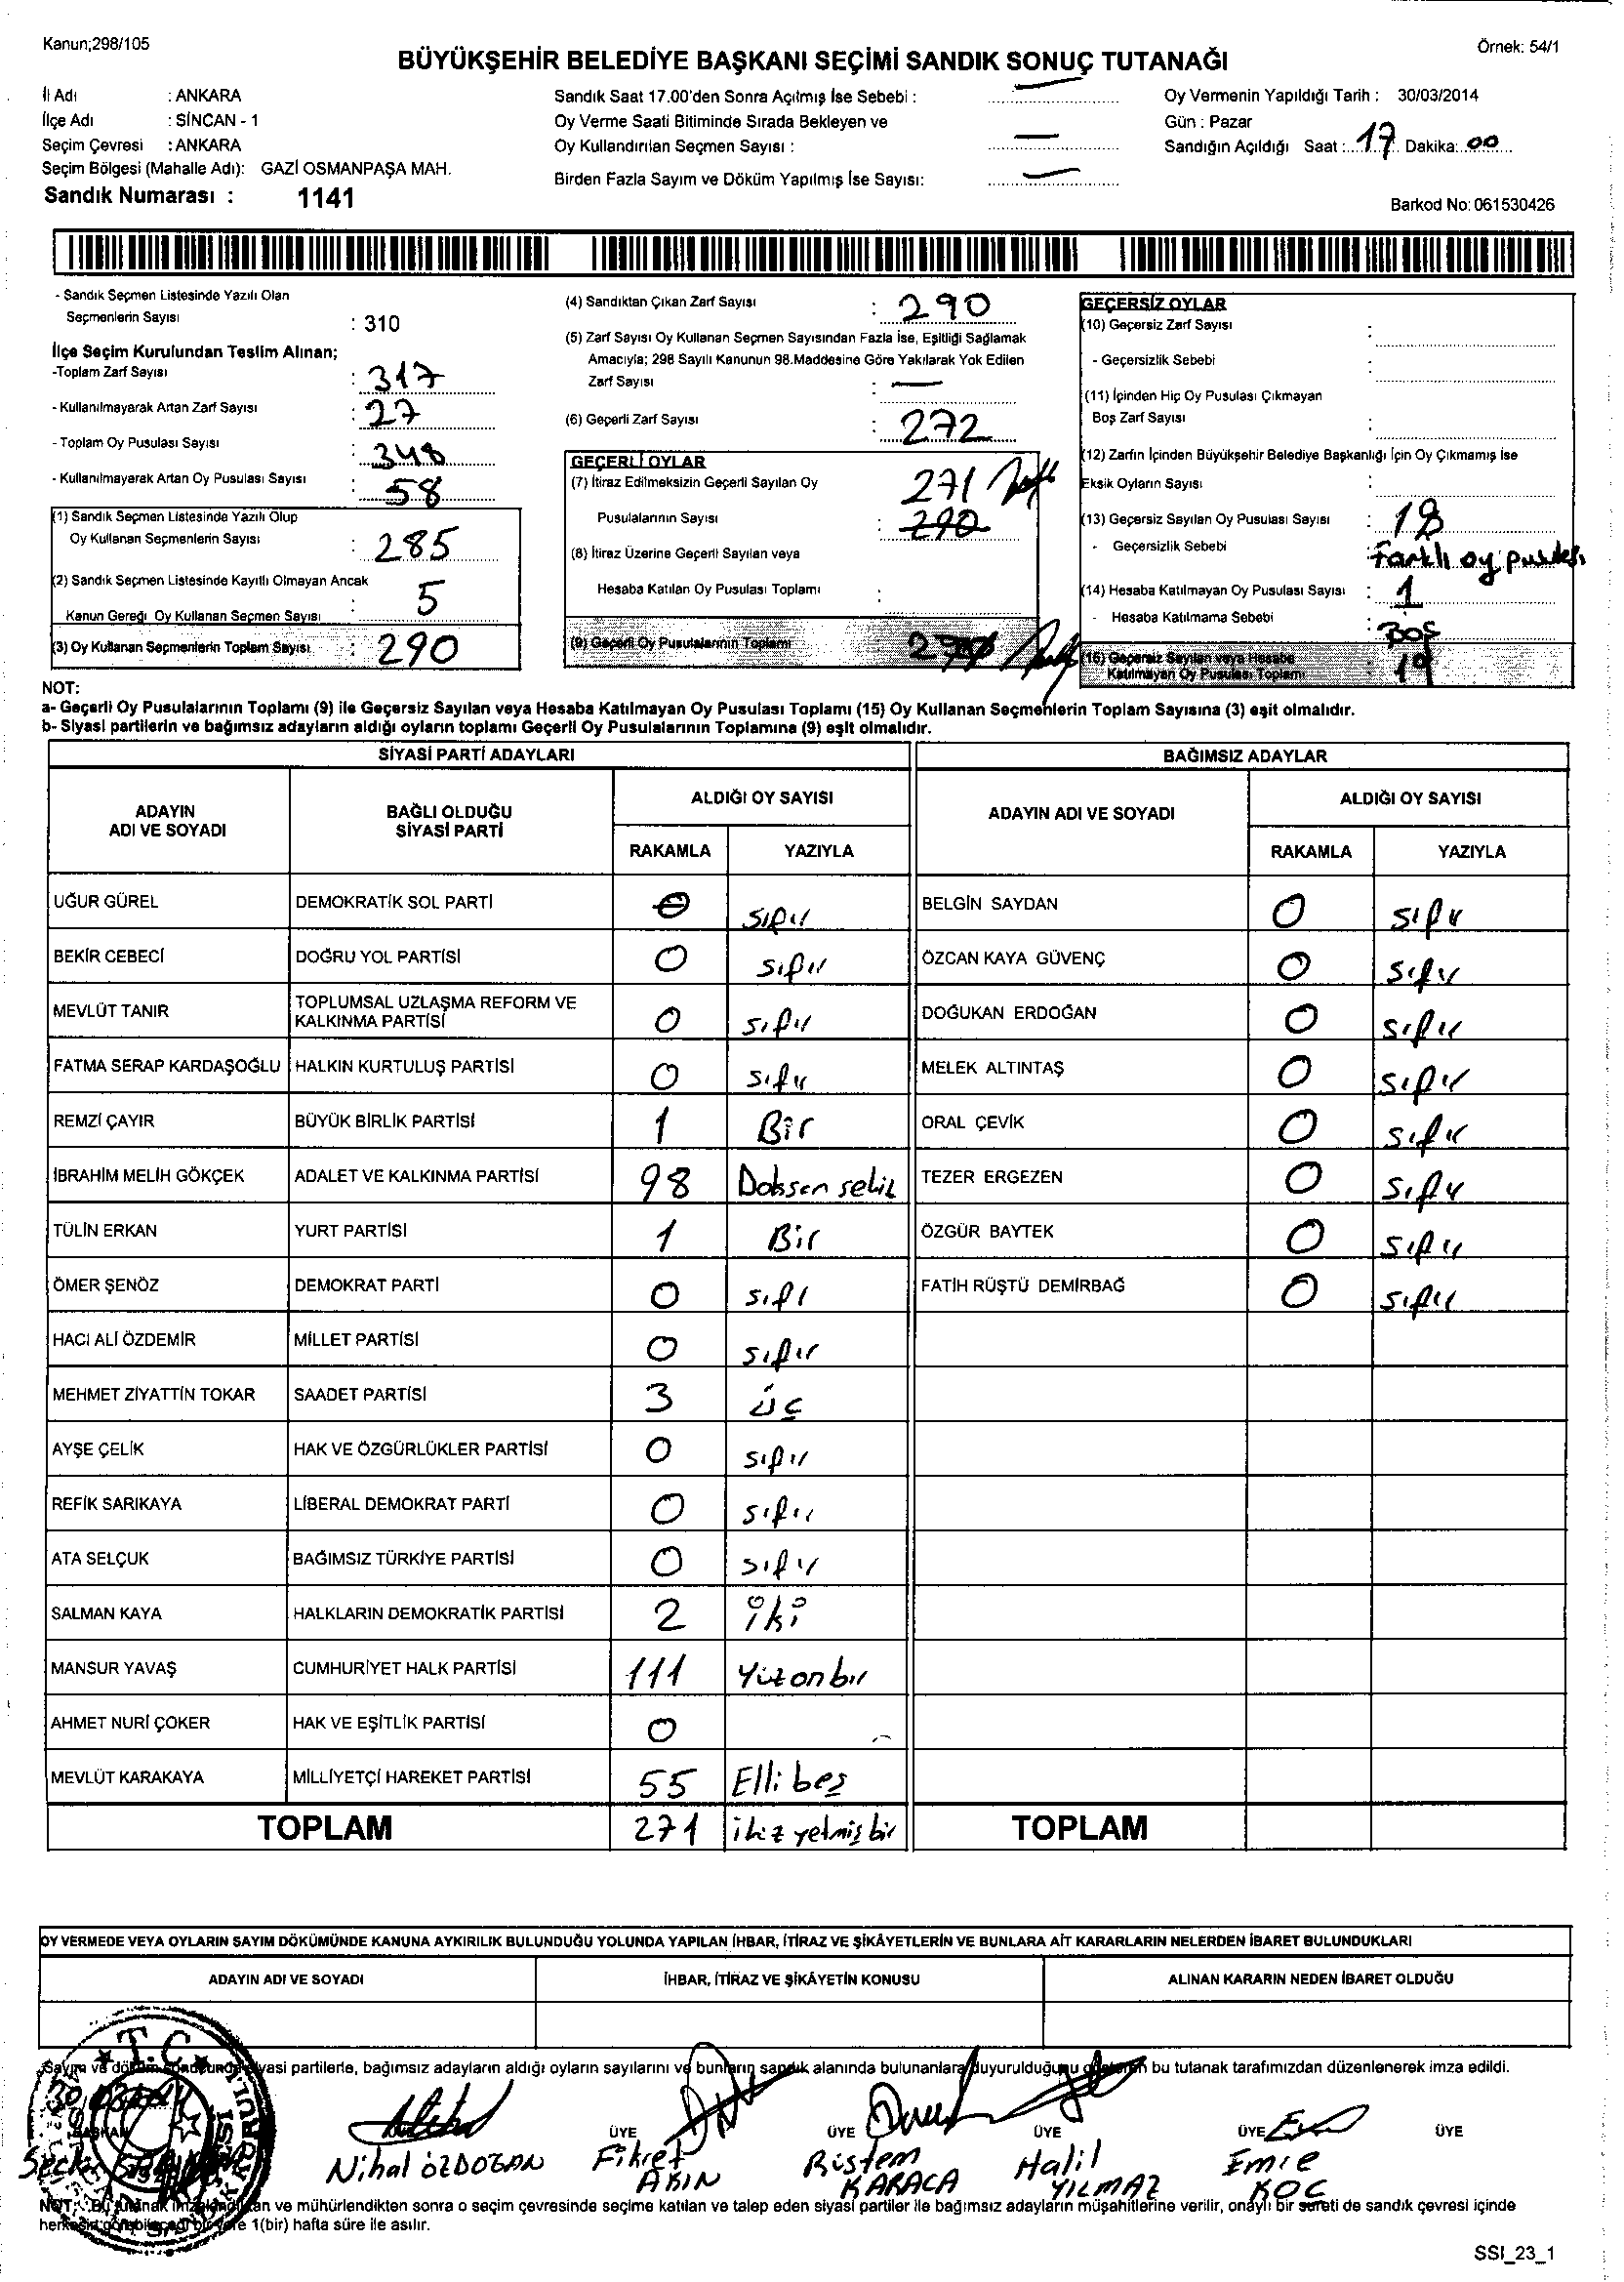 Kanun;298/105
Örnek: 54/1
BÜYÜKŞEHİR BELEDİYE BAŞKANI SEÇİMİ SANDIK SONUÇ TUTANAĞI
İl Adı : ANKARA
İlçe Adı : SİNCAN - 1
Seçim Çevresi : ANKARA
Seçim Bölgesi (Mahalle Adı): GAZİ OSMANPAŞA MAH.
Sandık Numarası : 1141
Sandık Saat 17.00'den Sonra Açılmış İse Sebebi : —
Oy Verme Saati Bitiminde Sırada Bekleyen ve
Oy Kullandırılan Seçmen Sayısı : —
Birden Fazla Sayım ve Döküm Yapılmış İse Sayısı: —
Oy Vermenin Yapıldığı Tarih : 30/03/2014
Gün : Pazar
Sandığın Açıldığı Saat : 17 Dakika: 00
Barkod No: 061530426
- Sandık Seçmen Listesinde Yazılı Olan
Seçmenlerin Sayısı : 310
İlçe Seçim Kurulundan Teslim Alınan;
-Toplam Zarf Sayısı : 317
- Kullanılmayarak Artan Zarf Sayısı : 27
- Toplam Oy Pusulası Sayısı : 348
- Kullanılmayarak Artan Oy Pusulası Sayısı : 58
(1) Sandık Seçmen Listesinde Yazılı Olup
Oy Kullanan Seçmenlerin Sayısı : 285
(2) Sandık Seçmen Listesinde Kayıtlı Olmayan Ancak
Kanun Gereği Oy Kullanan Seçmen Sayısı : 5
(3) Oy Kullanan Seçmenlerin Toplam Sayısı : 290
(4) Sandıktan Çıkan Zarf Sayısı : 290
(5) Zarf Sayısı Oy Kullanan Seçmen Sayısından Fazla İse, Eşitliği Sağlamak
Amacıyla; 298 Sayılı Kanunun 98.Maddesine Göre Yakılarak Yok Edilen
Zarf Sayısı : —
(6) Geçerli Zarf Sayısı : 272
GEÇERLİ OYLAR
(7) İtiraz Edilmeksizin Geçerli Sayılan Oy 271
Pusulalarının Sayısı : 290
(8) İtiraz Üzerine Geçerli Sayılan veya
Hesaba Katılan Oy Pusulası Toplamı :
(9) Geçerli Oy Pusulalarının Toplamı
GEÇERSİZ OYLAR
(10) Geçersiz Zarf Sayısı :
- Geçersizlik Sebebi :
(11) İçinden Hiç Oy Pusulası Çıkmayan
Boş Zarf Sayısı :
(12) Zarfın İçinden Büyükşehir Belediye Başkanlığı İçin Oy Çıkmamış İse
Eksik Oyların Sayısı :
(13) Geçersiz Sayılan Oy Pusulası Sayısı : 18
- Geçersizlik Sebebi : Farklı oy pusulası
(14) Hesaba Katılmayan Oy Pusulası Sayısı : 1
- Hesaba Katılmama Sebebi : Boş
(15) Geçersiz Sayılan veya Hesaba
Katılmayan Oy Pusulası Toplamı : 19
NOT:
a- Geçerli Oy Pusulalarının Toplamı (9) ile Geçersiz Sayılan veya Hesaba Katılmayan Oy Pusulası Toplamı (15) Oy Kullanan Seçmenlerin Toplam Sayısına (3) eşit olmalıdır.
b- Siyasi partilerin ve bağımsız adayların aldığı oyların toplamı Geçerli Oy Pusulalarının Toplamına (9) eşit olmalıdır.
SİYASİ PARTİ ADAYLARI
ADAYIN ADI VE SOYADI BAĞLI OLDUĞU SİYASİ PARTİ ALDIĞI OY SAYISI
RAKAMLA YAZIYLA
UĞUR GÜREL DEMOKRATİK SOL PARTİ 0 sıfır
BEKİR CEBECİ DOĞRU YOL PARTİSİ 0 sıfır
MEVLÜT TANIR TOPLUMSAL UZLAŞMA REFORM VE KALKINMA PARTİSİ 0 sıfır
FATMA SERAP KARDAŞOĞLU HALKIN KURTULUŞ PARTİSİ 0 sıfır
REMZİ ÇAYIR BÜYÜK BİRLİK PARTİSİ 1 Bir
İBRAHİM MELİH GÖKÇEK ADALET VE KALKINMA PARTİSİ 98 Doksan sekiz
TÜLİN ERKAN YURT PARTİSİ 1 Bir
ÖMER ŞENÖZ DEMOKRAT PARTİ 0 sıfı
HACI ALİ ÖZDEMİR MİLLET PARTİSİ 0 sıfır
MEHMET ZİYATTİN TOKAR SAADET PARTİSİ 3 üç
AYŞE ÇELİK HAK VE ÖZGÜRLÜKLER PARTİSİ 0 sıfır
REFİK SARIKAYA LİBERAL DEMOKRAT PARTİ 0 sıfır
ATA SELÇUK BAĞIMSIZ TÜRKİYE PARTİSİ 0 sıfır
SALMAN KAYA HALKLARIN DEMOKRATİK PARTİSİ 2 iki
MANSUR YAVAŞ CUMHURİYET HALK PARTİSİ 111 Yüzonbir
AHMET NURİ ÇOKER HAK VE EŞİTLİK PARTİSİ 0
MEVLÜT KARAKAYA MİLLİYETÇİ HAREKET PARTİSİ 55 Elli beş
TOPLAM 271 ikiz yetmiş bir
BAĞIMSIZ ADAYLAR
ADAYIN ADI VE SOYADI ALDIĞI OY SAYISI
RAKAMLA YAZIYLA
BELGİN SAYDAN 0 sıfır
ÖZCAN KAYA GÜVENÇ 0 sıfır
DOĞUKAN ERDOĞAN 0 sıfır
MELEK ALTINTAŞ 0 sıfır
ORAL ÇEVİK 0 sıfır
TEZER ERGEZEN 0 sıfır
ÖZGÜR BAYTEK 0 sıfır
FATİH RÜŞTÜ DEMİRBAĞ 0 sıfır
TOPLAM
OY VERMEDE VEYA OYLARIN SAYIM DÖKÜMÜNDE KANUNA AYKIRILIK BULUNDUĞU YOLUNDA YAPILAN İHBAR, İTİRAZ VE ŞİKÂYETLERİN VE BUNLARA AİT KARARLARIN NELERDEN İBARET BULUNDUKLARI
ADAYIN ADI VE SOYADI İHBAR, İTİRAZ VE ŞİKÂYETİN KONUSU ALINAN KARARIN NEDEN İBARET OLDUĞU
Sayım ve döküm sonucunda siyasi partilerle, bağımsız adayların aldığı oyların sayılarını ve bunların sandık alanında bulunanlara duyurulduğunu gösteren bu tutanak tarafımızdan düzenlenerek imza edildi.
T.C
BAŞKAN ÜYE ÜYE ÜYE ÜYE ÜYE
Nihal ÖZDOĞAN Fikret AKIN Rüstem KARACA Halil YILMAZ Emre KOÇ
NOT: Bu tutanak imzalandıktan ve mühürlendikten sonra o seçim çevresinde seçime katılan ve talep eden siyasi partiler ile bağımsız adayların müşahitlerine verilir, onaylı bir sureti de sandık çevresi içinde
herkesin görebileceği bir yere 1(bir) hafta süre ile asılır.
SSI_23_1